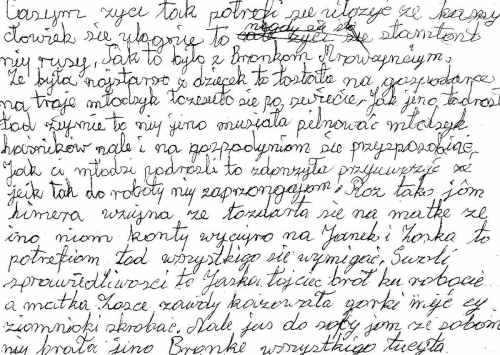 Casym zyci tak potrafi sie ułozyć ze kazdy
cłowiek sie ulagnie to nigdy sie stamtont
niy rusy. Tak to było z Bronkom Mrowajnynym.
Ze była nojstarso z dziecek to tostała na gospodarce
na troje młodsyk tozesuło sie po świecie. Jak jino
tod zymie to niy jino musiała pilnować młodsyk
harników nale i na gospodyniom sie przysposobiać.
Jak ci młodsi podrośli to zdonzyła przywyknąć ze
jeik tak do roboty niy zaprzongajom. Roz tako jom
himera wziyna ze tozdarła sie na matke ze
ino niom konty wyciyro na Janek i Zośka to
potrafiom tod wszystkiego sie wymigać. Swoli
sprowiedliwości to Jaśka tojciec broł ku robocie
a matka Zośce zawdy kazowała gorki myć cy
ziomnioki skrobać. Nale jus do soby jom ze sobom
niy brała jino Bronke wszystkiego tucyła.